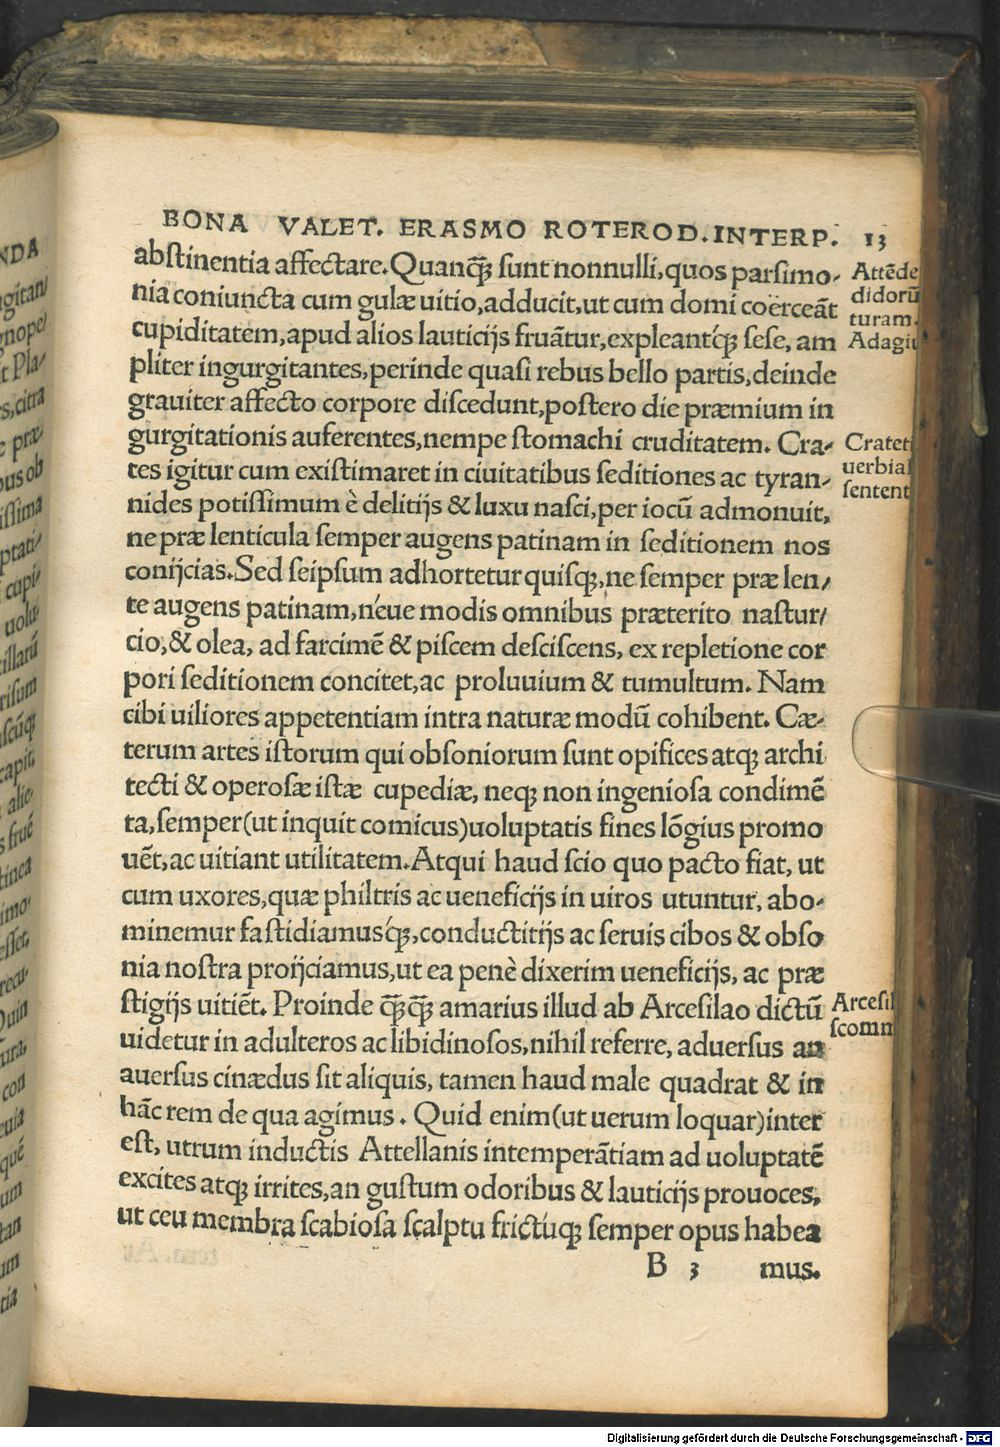 BONA VALET. ERASMO ROTEROD. INTERP. 13
abſtinentia affectare. Quanꝗ̃ ſunt nonnulli, quos parſimo-
nia coniuncta cum gulæ uitio, adducit, ut cum domi coërceāt
cupiditatem, apud alios lauticijs fruātur, expleantq́ꝫ ſeſe, am
pliter ingurgitantes, perinde quaſi rebus bello partis, deinde
grauiter affecto corpore diſcedunt, poſtero die præmium in
gurgitationis auferentes, nempe ſtomachi cruditatem. Cra-
tes igitur cum exiſtimaret in ciuitatibus ſeditiones ac tyran-
nides potiſſimum è delitijs & luxu naſci, per iocū admonuit,
ne præ lenticula ſemper augens patinam in ſeditionem nos
conijcias. Sed ſeipſum adhortetur quiſqꝫ, ne ſemper præ len/
te augens patinam, néue modis omnibus præterito naſtur/
cio, & olea, ad farcimē & piſcem deſciſcens, ex repletione cor
pori ſeditionem concitet, ac proluuium & tumultum. Nam
cibi uiliores appetentiam intra naturæ modū cohibent. Cæ-
terum artes iſtorum qui obſoniorum ſunt opifices atqꝫ archi
tecti & operoſæ iſtæ cupediæ, neqꝫ non ingenioſa condimē
ta, ſemper (ut inquit comicus) uoluptatis fines lōgius promo
uēt, ac uitiant utilitatem. Atqui haud ſcio quo pacto fiat, ut
cum uxores, quæ philtris ac ueneficijs in uiros utuntur, abo-
minemur faſtidiamusq́ꝫ, conductitijs ac ſeruis cibos & obſo
nia noſtra proijciamus, ut ea penè dixerim ueneficijs, ac præ
ſtigijs uitiēt. Proinde ꝗ̃ꝗ̃ amarius illud ab Arceſilao dictū
uidetur in adulteros ac libidinoſos, nihil referre, aduerſus an
auerſus cinædus ſit aliquis, tamen haud male quadrat & in
hāc rem de qua agimus. Quid enim (ut uerum loquar) inter
eſt, utrum inductis Attellanis intemperātiam ad uoluptatē
excites atqꝫ irrites, an guſtum odoribus & lauticijs prouoces,
ut ceu membra ſcabioſa ſcalptu frictúqꝫ ſemper opus habea
B 3 mus.
Attēde
didorū
turam.
Adagiu
Crateti
uerbial
ſentent
Arceſil
ſcomm
Digitalisierung gefördert durch die Deutsche Forschungsgemeinschaft - DFG